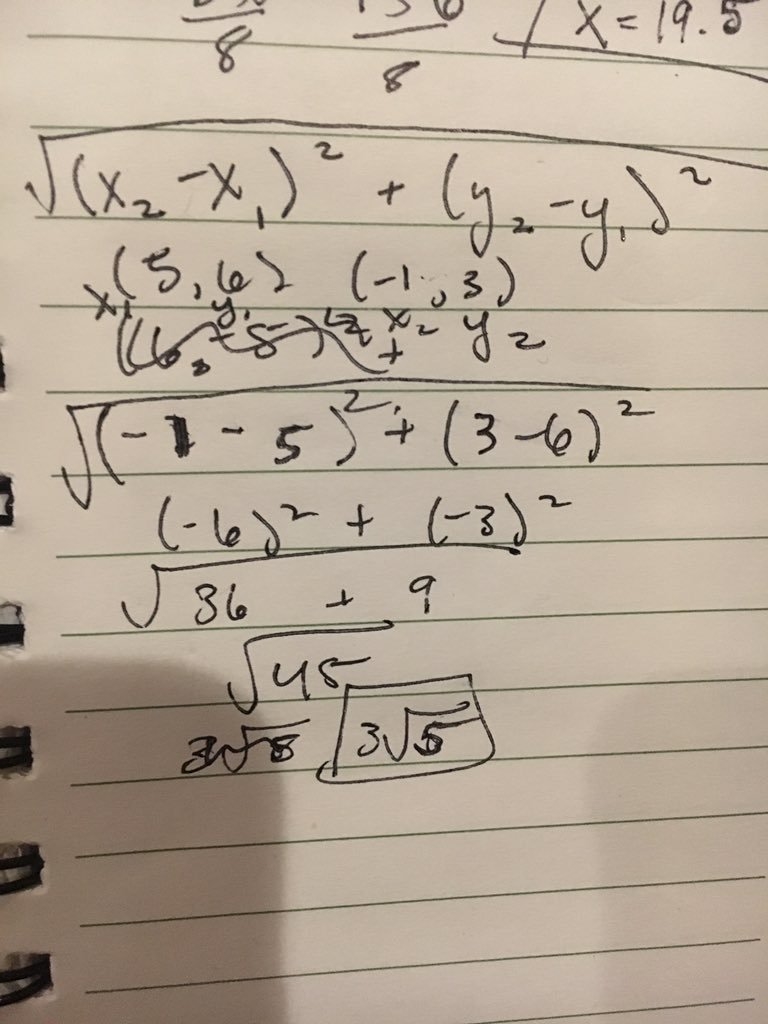 8 156/8 x = 19.5
√(x₂ - x₁)² + (y₂ - y₁)²
(5, 6) (-1, 3)
x₁ y₁ x₂ y₂
√(-1 - 5)² + (3 - 6)²
(-6)² + (-3)²
√36 + 9
√45
3√5 3√5